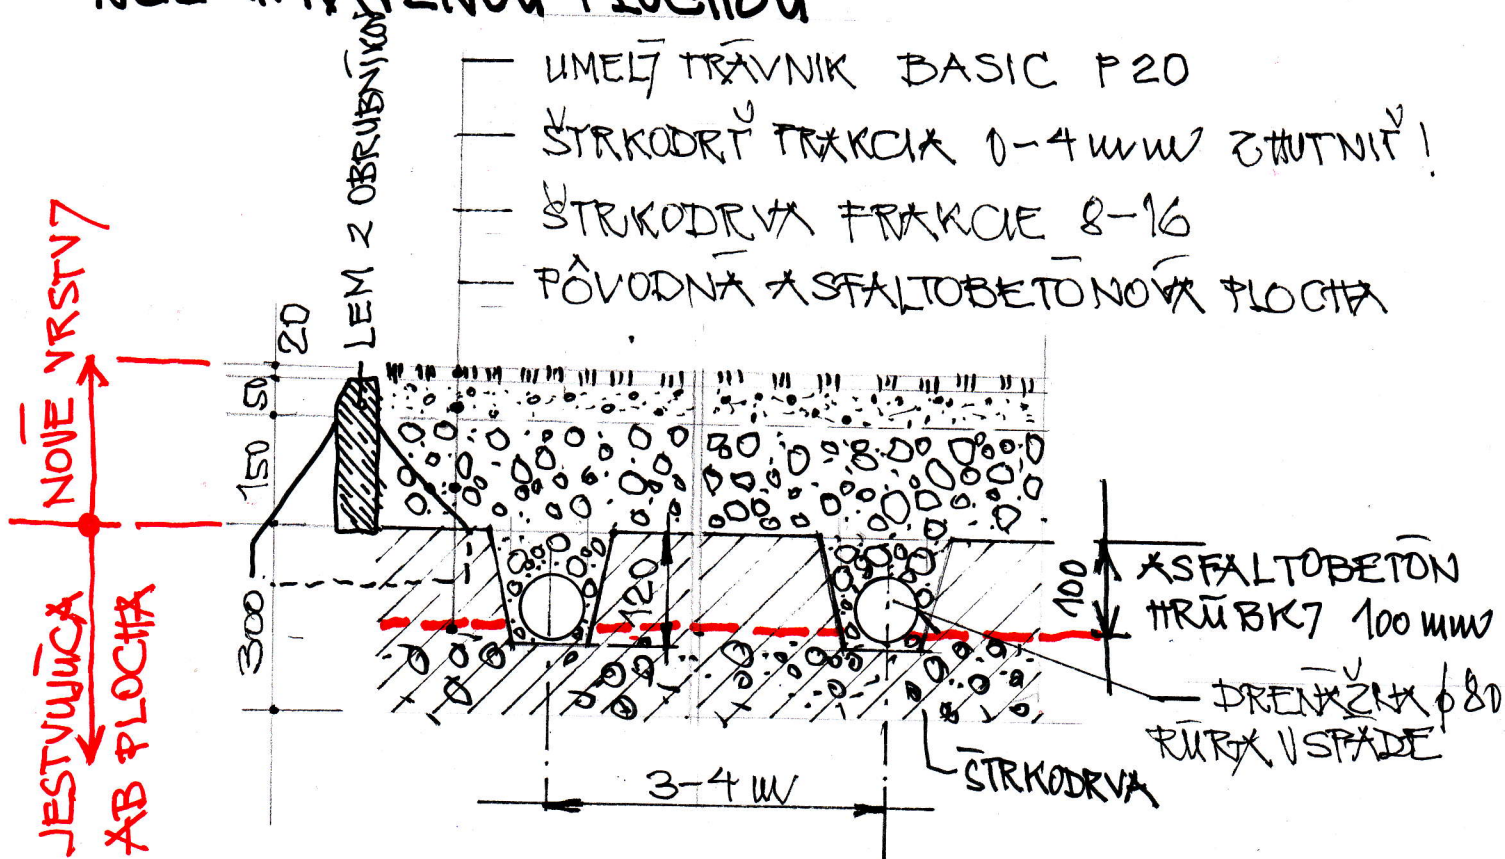 PLOCHOU
UMELÝ TRÁVNIK BASIC P20
ŠTRKODRŤ FRAKCIA 0-4 mm ZHUTNIŤ!
ŠTRKODRVA FRAKCIE 8-16
PÔVODNÁ ASFALTOBETÓNOVÁ PLOCHA
LEM Z OBRUBNÍKOV
NOVÉ VRSTVY
JESTVUJÚCA
AB PLOCHA
20
50
150
300
120
100
ASFALTOBETÓN
HRÚBKY 100 mm
DRENÁŽNA ϕ80
RÚRA V SPÁDE
ŠTRKODRVA
3-4 m